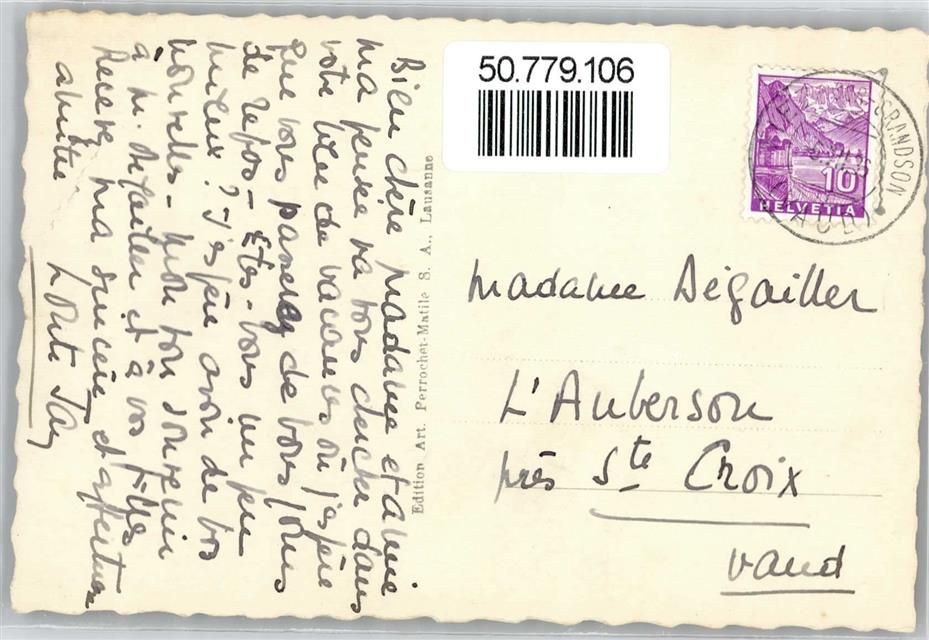 Bien chère Madame et amie
ma pensée va vous chercher dans
votre lieu de vacances où j'espère
que vous passez de bons jours
de repos - Êtes-vous un peu
mieux? J'espère avoir de vos
nouvelles - mon bon souvenir
à M. Dégailler et à vos filles
Recevez ma sincère et affectueuse
amitié
Edition Art. Perrochet-Matile S. A., Lausanne
50.779.106
GRANDSON
VAUD
10
HELVETIA
Madame Dégailler
L'Auberson
près Ste Croix
Vaud